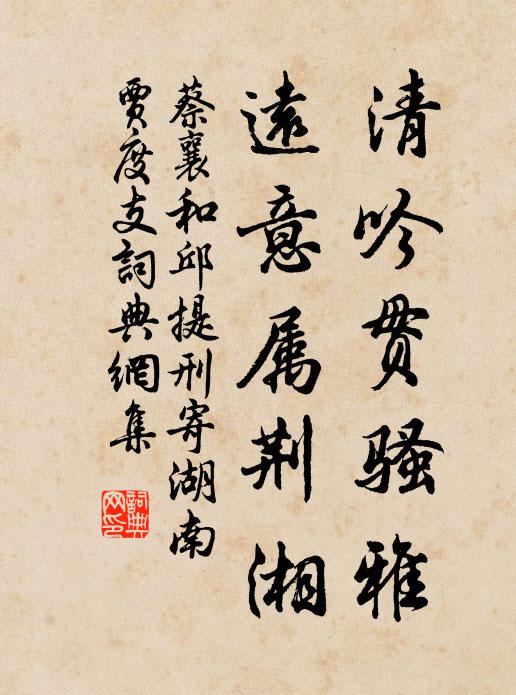 清吟贯骚雅
遠意属荆湘
蔡襄和邱提刑寄湖南
贾度支詞典網集
詞典网印